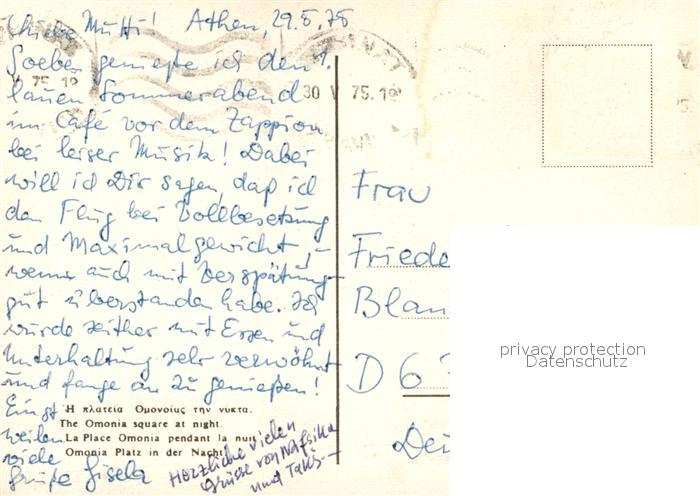 Liebe Mutti! Athen, 29.5.75
Soeben genieße ich den 1.
lauen Sommerabend
im Café vor dem Zappion
bei leiser Musik! Dabei
will ich Dir sagen, daß ich
den Flug bei Vollbesetzung
und Maximalgewicht, -
wenn auch mit Verspätung -
gut überstanden habe. Ich
wurde seither mit Essen und
Unterhaltung sehr verwöhnt
und fange an zu genießen!
Einst
weilen
viele
Grüße Gisela
Herzliche vielen
Grüsse von Nafsika
und Takis
Ἡ πλατεῖα Ὁμονοίας τὴν νύκτα.
The Omonia square at night.
La Place Omonia pendant la nuit
Omonia Platz in der Nacht
30 V 75.19
Frau
Friede
Blan
D 6
Deu
privacy protection
Datenschutz